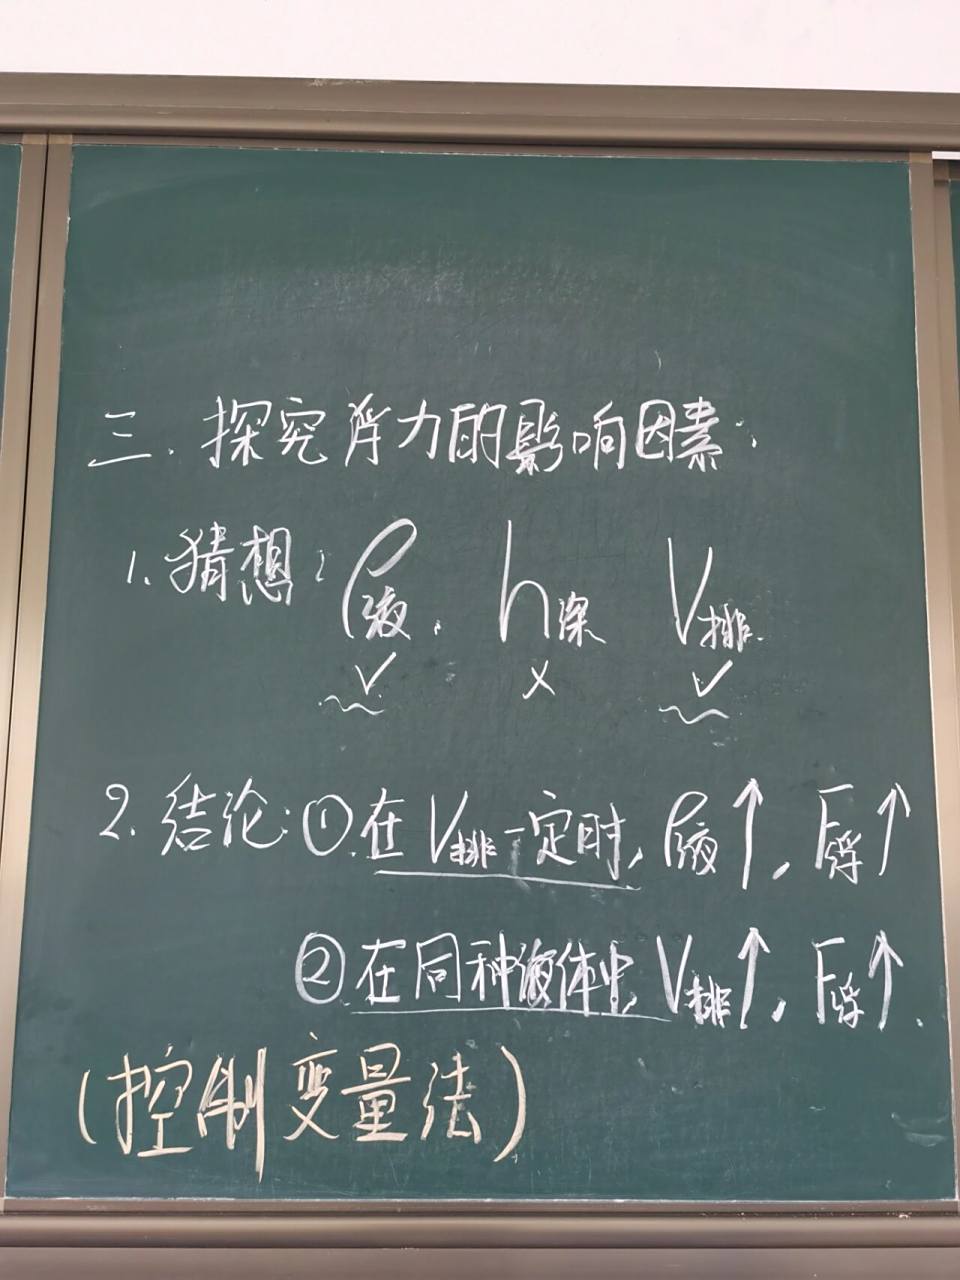 三.探究浮力的影响因素:
1.猜想: ρ液. h深 V排.
✓ × ✓
2.结论:①在V排一定时,ρ液↑,F浮↑
②在同种液体中,V排↑,F浮↑.
(控制变量法)